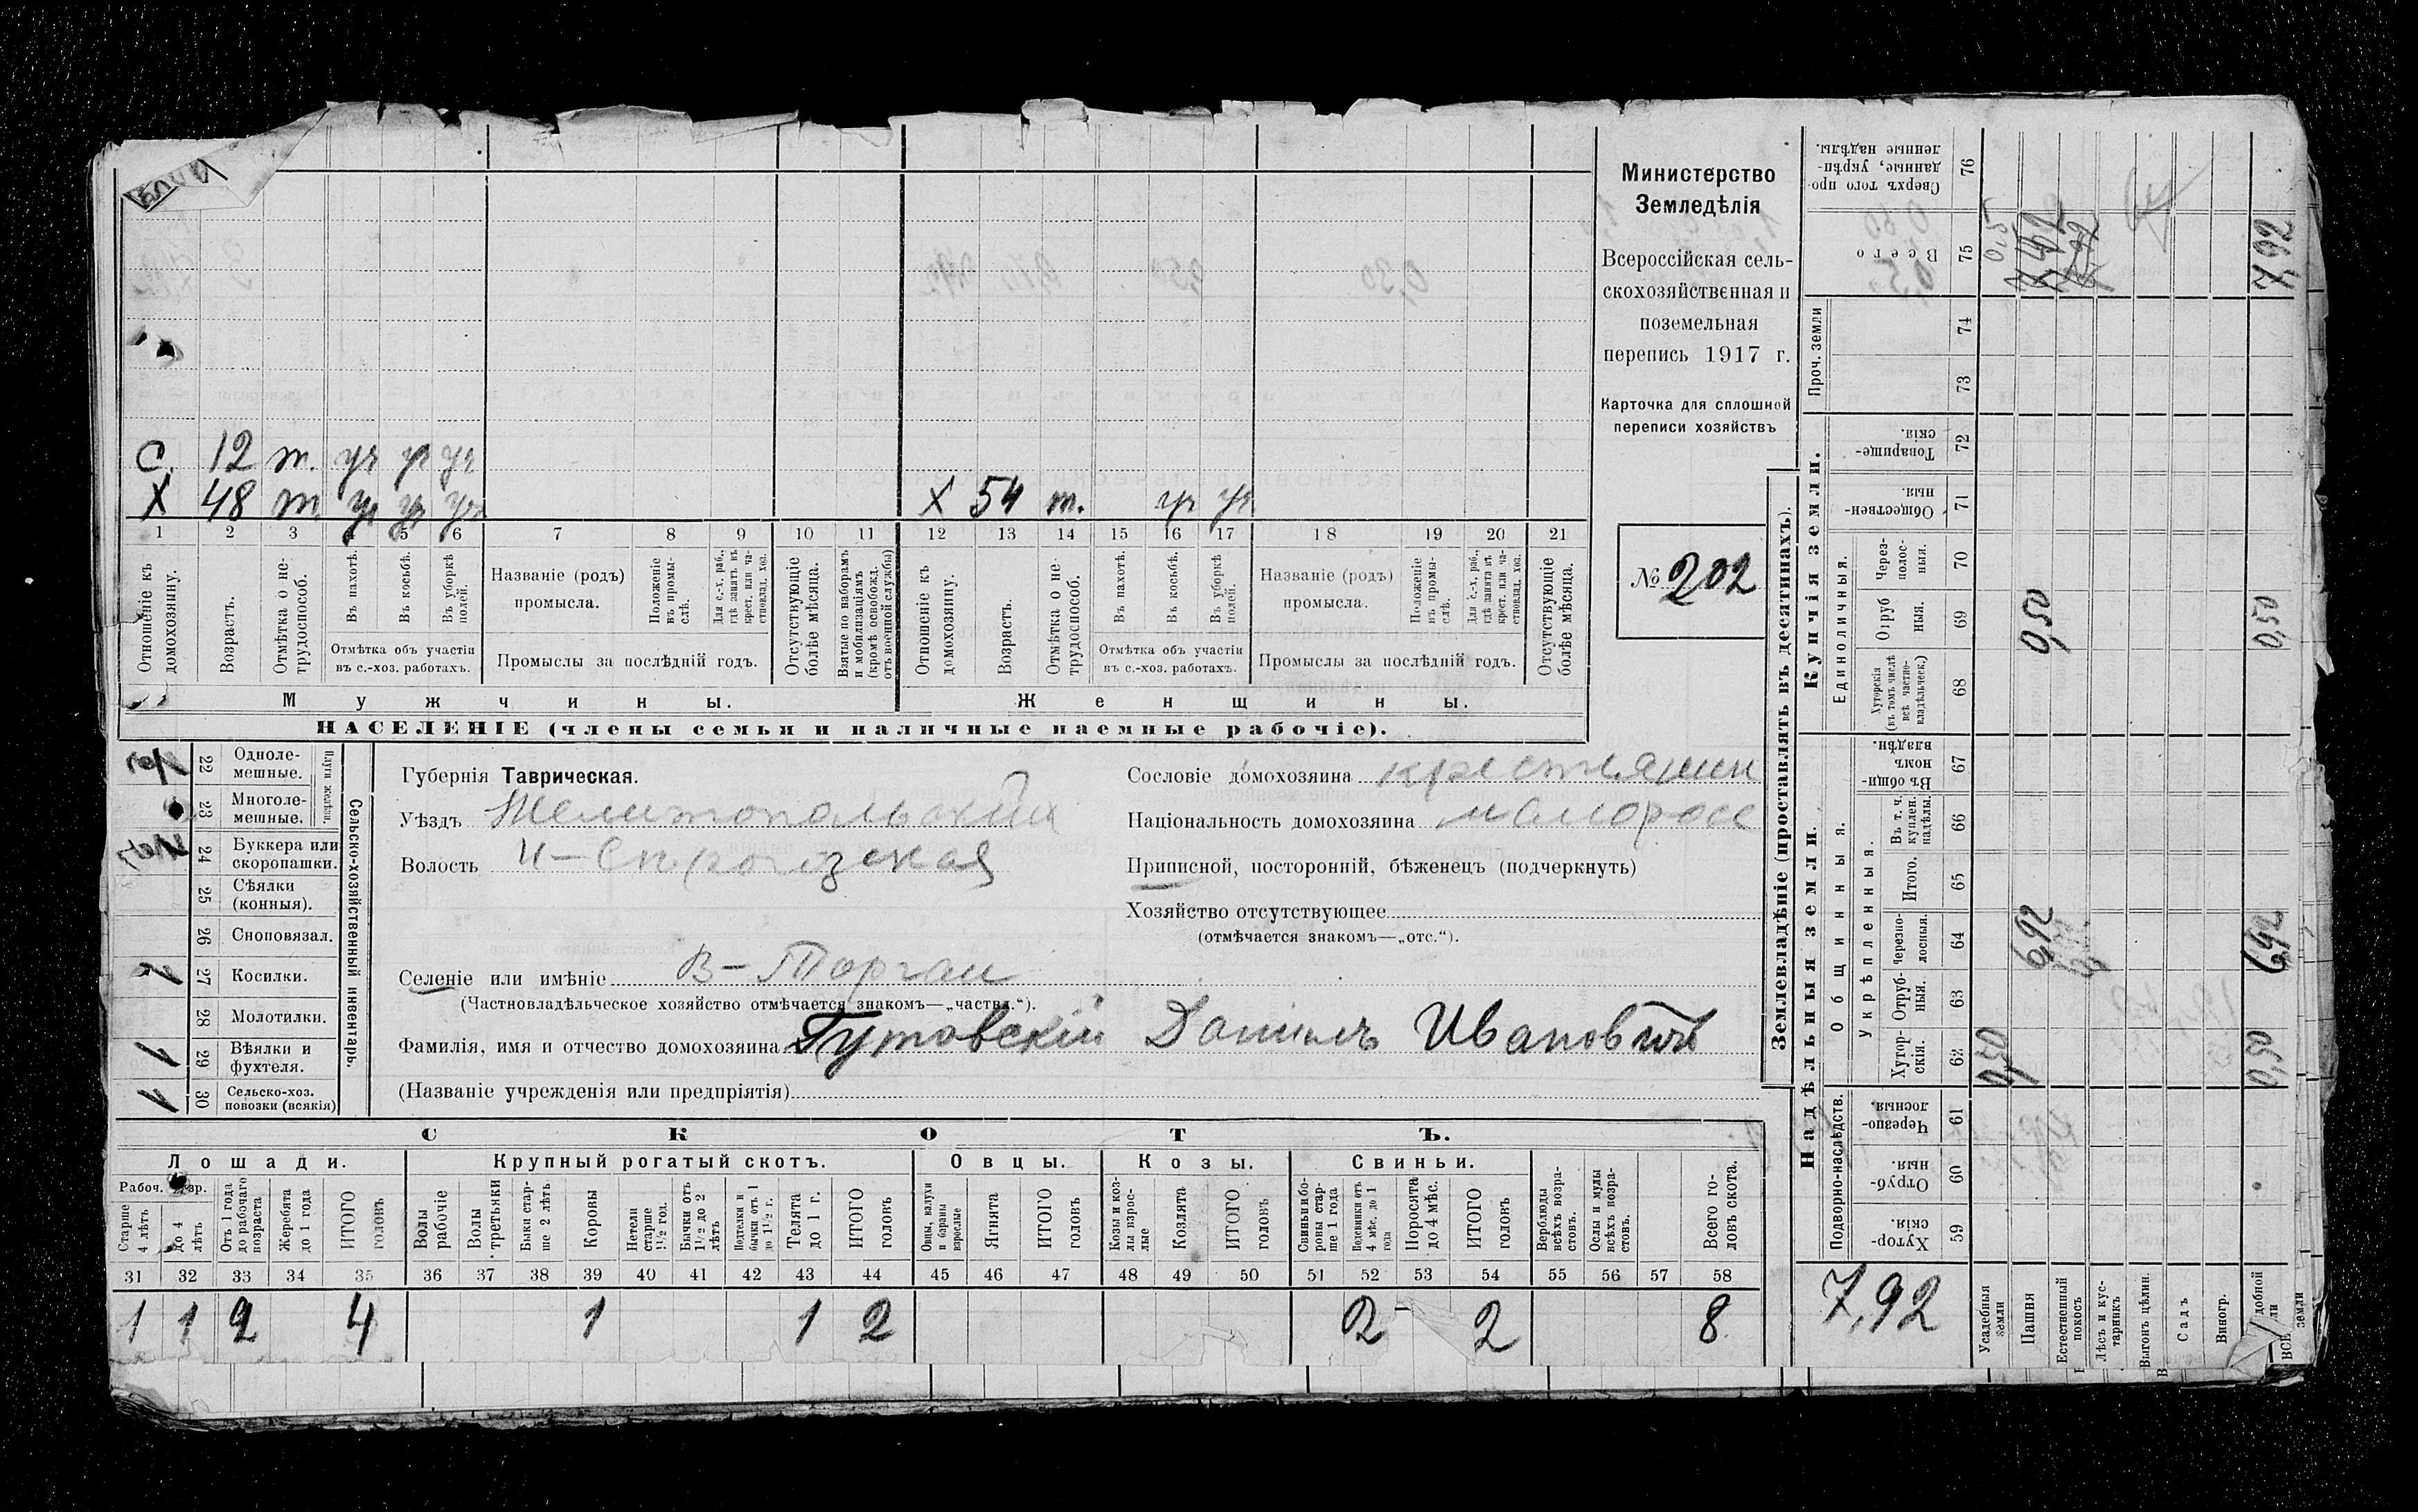 с. 12 т. уч уч уч
X 48 т. уч уч уч X 54 т. уч уч
1 2 3 4 5 6 7 8 9 10 11 12 13 14 15 16 17 18 19 20 21
Отношеніе къ домохозяину.
Возрастъ.
Отмѣтка о нетрудоспособ.
Въ пахотѣ.
Въ косьбѣ.
Въ уборкѣ полей.
Отмѣтка объ участіи
въ с.-хоз. работахъ.
Названіе (родъ)
промысла.
Положеніе въ промыслѣ.
Для с.-х. раб., гдѣ занятъ въ крест. или частновлад. хоз.
Промыслы за послѣдній годъ.
Отсутствующіе болѣе мѣсяца.
Взятые по наборамъ и мобилизаціямъ (кромѣ освобожд. отъ военной службы)
Отношеніе къ домохозяину.
Возрастъ.
Отмѣтка о нетрудоспособ.
Въ пахотѣ.
Въ косьбѣ.
Въ уборкѣ полей.
Отмѣтка объ участіи
въ с.-хоз. работахъ.
Названіе (родъ)
промысла.
Положеніе въ промыслѣ.
Для с.-х. раб., гдѣ занята въ крест. или частновлад. хоз.
Промыслы за послѣдній годъ.
Отсутствующіе болѣе мѣсяца.
Мужчины. Женщины.
НАСЕЛЕНІЕ (члены семьи и наличные наемные рабочіе).
Министерство
Земледѣлія
Всероссійская сель-
скохозяйственная и
поземельная
перепись 1917 г.
Карточка для сплошной
переписи хозяйствъ
№ 202
22 Одноле-
мешные.
23 Многоле-
мешные.
Плуги желѣзн.
24 Буккера или
скоропашки.
25 Сѣялки
(конныя).
26 Сноповязал.
1 27 Косилки.
28 Молотилки.
1 29 Вѣялки и
фухтеля.
1 30 Сельско-хоз.
повозки (всякія)
Сельско-хозяйственный инвентарь.
Губернія Таврическая.
Уѣздъ Мелитопольскій
Волость Н-Сѣрогозская
Селеніе или имѣніе В-Торгаи
(Частновладѣльческое хозяйство отмѣчается знакомъ—„частвл.“).
Фамилія, имя и отчество домохозяина Гутовскій Данилъ Ивановичъ
(Названіе учрежденія или предпріятія)
Сословіе домохозяина крестьянин
Національность домохозяина малоросс
Приписной, посторонній, бѣженецъ (подчеркнуть)
Хозяйство отсутствующее
(отмѣчается знакомъ—„отс.“).
СКОТЪ.
Лошади. Крупный рогатый скотъ. Овцы. Козы. Свиньи.
Рабоч.
Старше 4 лѣтъ
до 4 лѣтъ
Отъ 1 года до рабочаго возраста
Жеребята до 1 года
ИТОГО головъ
Волы рабочіе
Волы третьяки
Быки старше 2 лѣтъ
Коровы
Нетели старше 1½ год.
Бычки отъ 1½ до 2 лѣтъ
Подтелки и бычки отъ 1 до 1½ г.
Телята до 1 г.
ИТОГО головъ
Овцы, валухи и бараны взрослые
Ягнята
ИТОГО головъ
Козы и козлы взрослые
Козлята
ИТОГО головъ
Свиньи и боровы старше 1 года
Подсвинки отъ 4 мѣс. до 1 года
Поросята до 4 мѣс.
ИТОГО головъ
Верблюды всѣхъ возрастовъ.
Ослы и мулы всѣхъ возрастовъ.
Всего головъ скота.
31 32 33 34 35 36 37 38 39 40 41 42 43 44 45 46 47 48 49 50 51 52 53 54 55 56 57 58
1 1 2 4 1 1 2 2 - 2 8
Землевладѣніе (проставлять въ десятинахъ).
Купчія земли.
Надѣльныя земли.
Сверхъ того проданные, укрѣпленные надѣлы. 76
Всего 75 0,5 7,92
Проч. земли 74 73
Товарищескія. 72
Общественныя. 71
Единоличныя.
Черезполосныя. 70
Отрубныя. 69 0,50 0,50
Хуторскія (въ томъ числѣ всѣ частновладѣльческ.) 68
Общинныя.
Въ общинномъ владѣн. 67
Укрѣпленныя.
Въ т. ч. куплен. надѣлы. 66
Итого. 65
Черезполосныя. 64 6,92 6,92
Отрубныя. 63
Хуторскія. 62 0,50 0,50
Подворно-наслѣдств.
Черезполосныя. 61
Отрубныя. 60
Хуторскія. 59
7,92
Усадебныя земли
Пашня
Естественный покосъ
Лѣсъ и кустарникъ
Выгонъ цѣлин.
Садъ
Виногр.